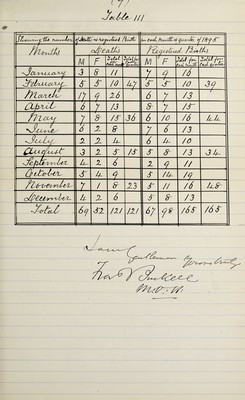 Table III
Showing the number of deaths & registered Births in each month & quarter of 1895
Months Deaths Registered Births
M F Total for each month Total for each quarter M F Total for each month Total for each quarter
January 3 8 11 7 9 16
February 5 5 10 47 5 5 10 39
March 17 9 26 6 7 13
April 6 7 13 8 7 15
May 7 8 15 36 6 10 16 44
June 6 2 8 7 6 13
July 2 2 4 6 4 10
August 3 2 5 15 5 8 13 34
September 4 2 6 2 9 11
October 5 4 9 5 14 19
November 7 1 8 23 5 11 16 48
December 4 2 6 5 8 13
Total 69 52 121 121 67 98 165 165
I am Gentlemen
Yours truly